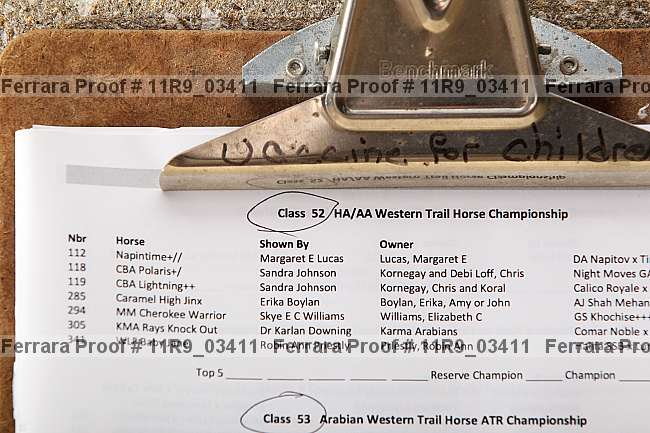 Benchmark
Ferrara Proof # 11R9_03411 Ferrara Proof # 11R9_03411 Ferrara Proof
Vaccine for Childre
Class 52 HA/AA Western Trail Horse Championship
Nbr Horse Shown By Owner
112 Napintime+// Margaret E Lucas Lucas, Margaret E DA Napitov x Ti
118 CBA Polaris+/ Sandra Johnson Kornegay and Debi Loff, Chris Night Moves GA
119 CBA Lightning++ Sandra Johnson Kornegay, Chris and Koral Calico Royale x
285 Caramel High Jinx Erika Boylan Boylan, Erika, Amy or John AJ Shah Mehan
294 MM Cherokee Warrior Skye E C Williams Williams, Elizabeth C GS Khochise+++
305 KMA Rays Knock Out Dr Karlan Downing Karma Arabians Comar Noble x
Robin Ann Priestly Priestly, Robin Ann
Ferrara Proof # 11R9_03411 Ferrara Proof # 11R9_03411 Ferrara Proof
Top 5 _____ _____ _____ _____ _____ Reserve Champion _____ Champion _____
Class 53 Arabian Western Trail Horse ATR Championship